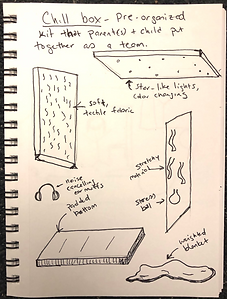 Chill box - Pre-organized
kit that parent(s) + child put
together as a team.
Star-like lights,
color changing
soft,
tactile fabric
stretchy
material
noise
cancelling
ear muffs
stress
ball
padded
bottom
weighted
blanket